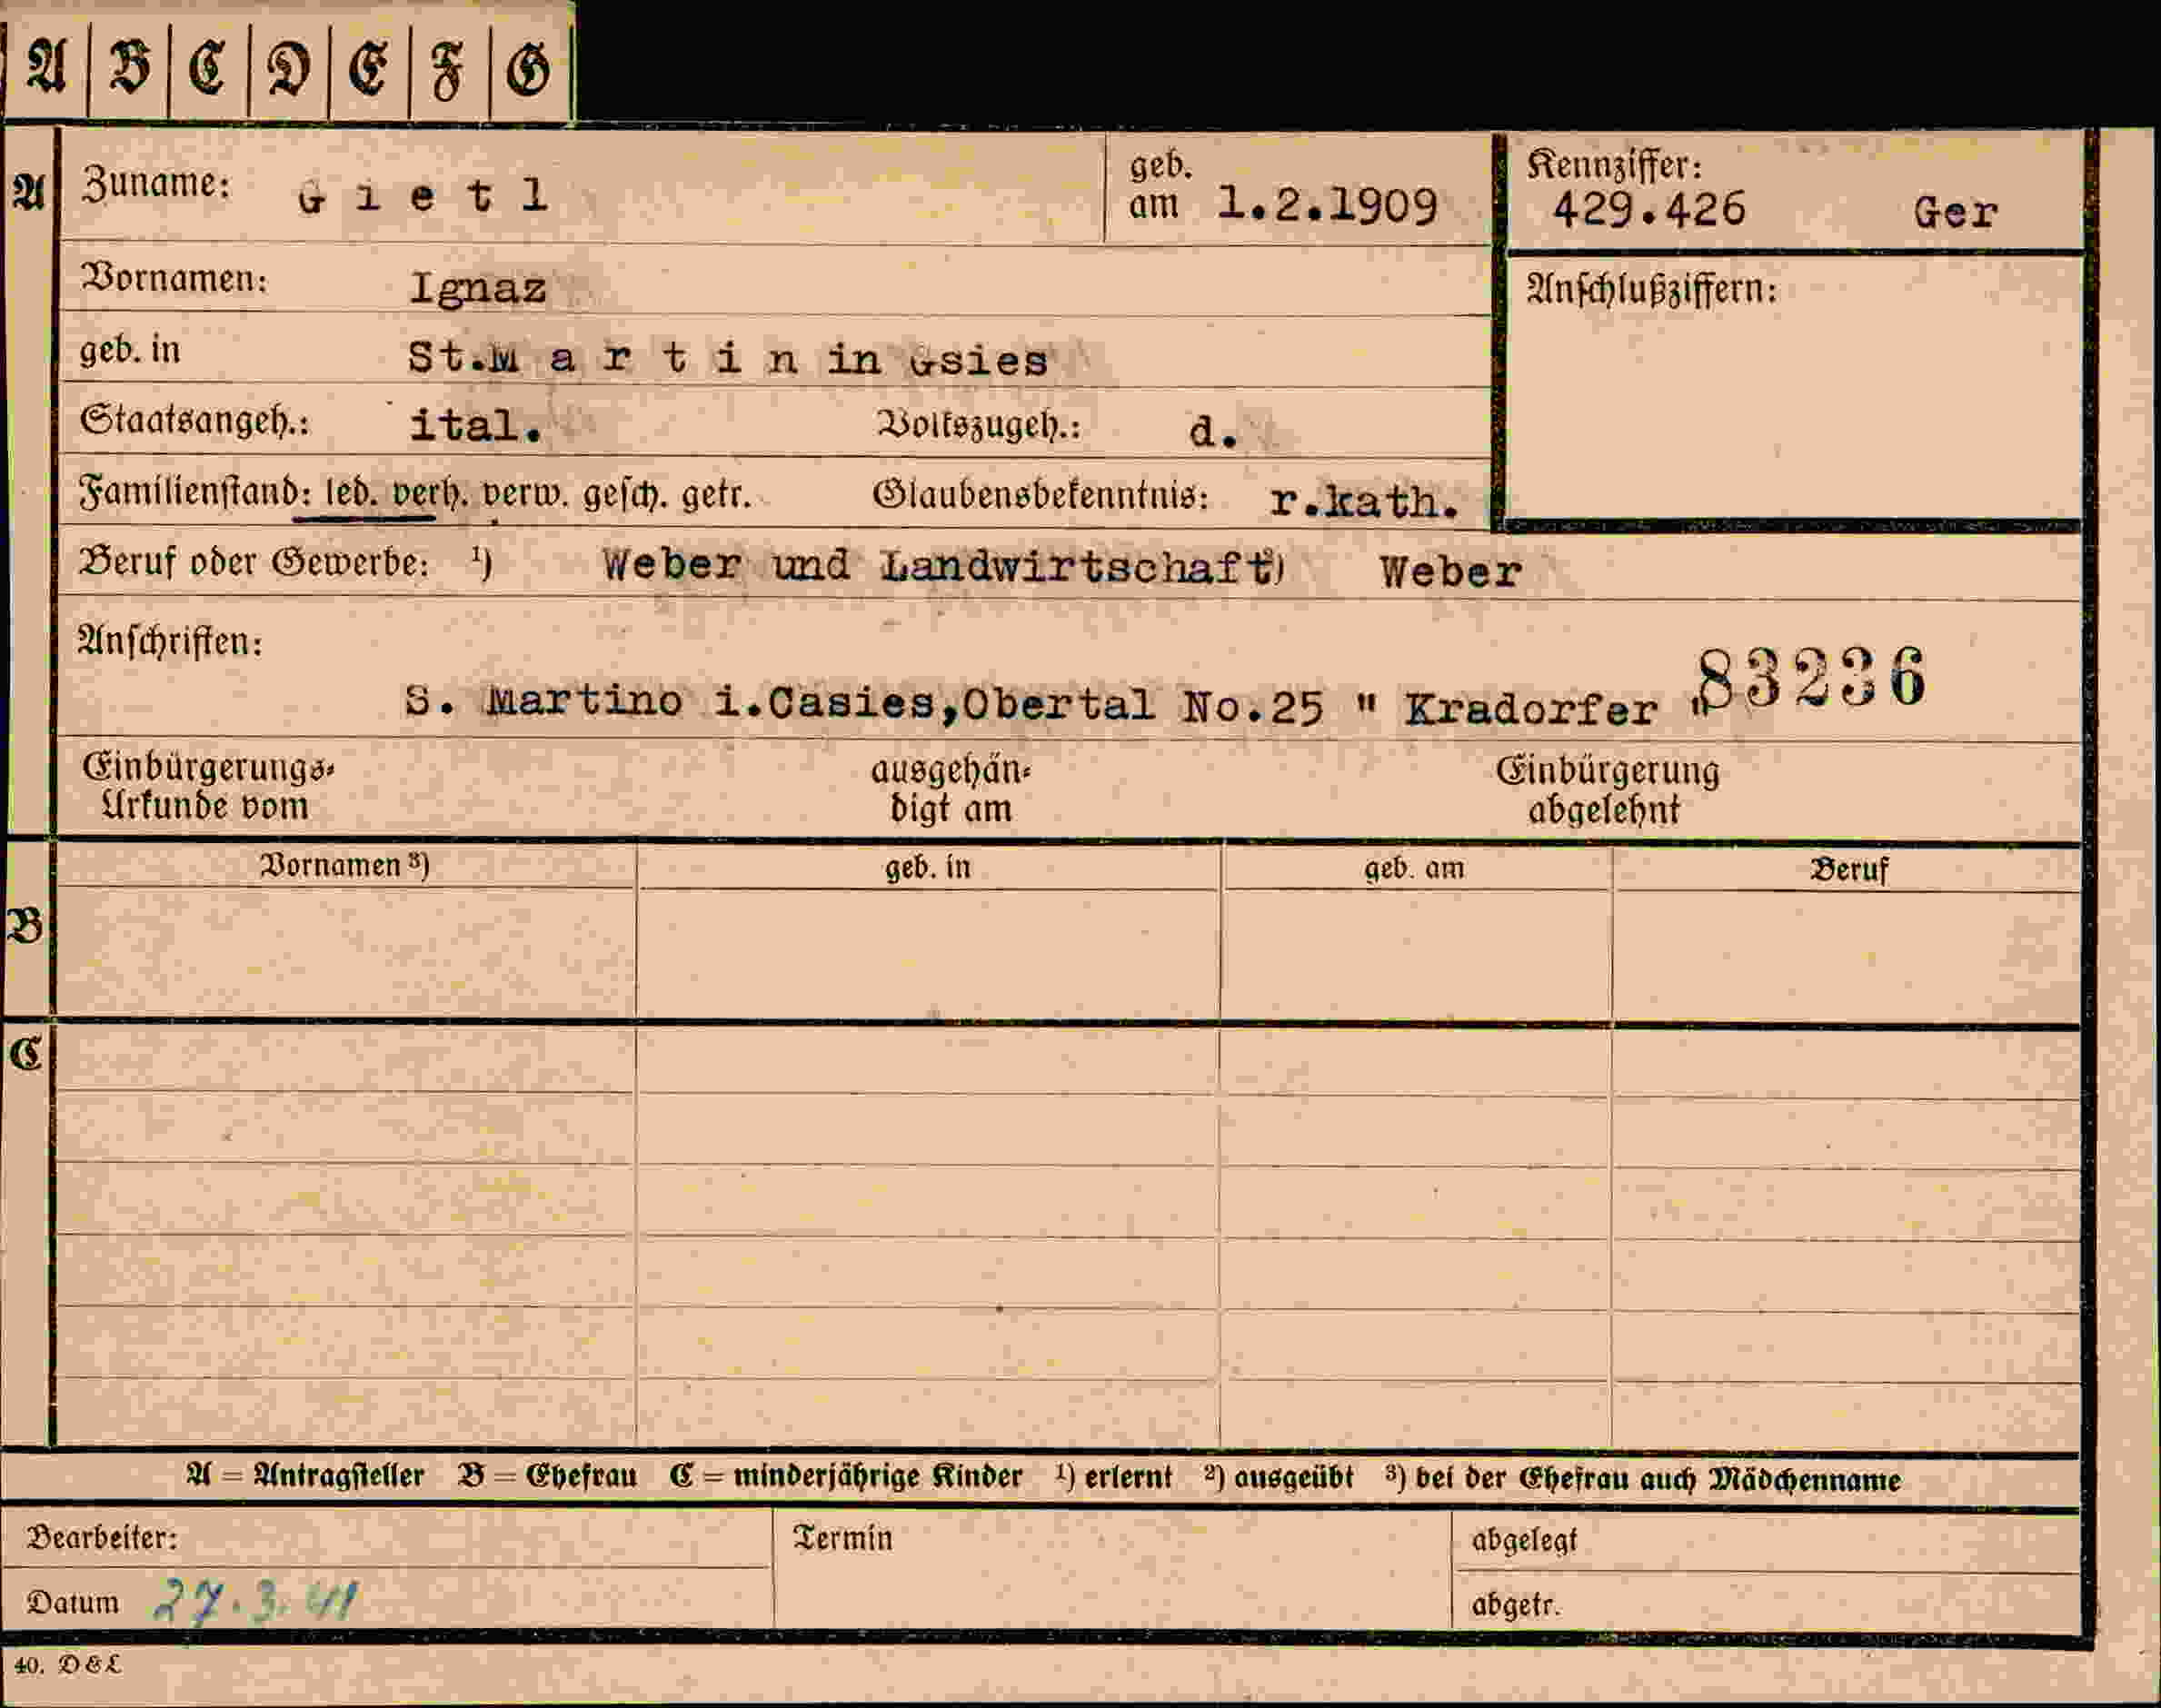 A B C D E F G
A Zuname: G i e t l geb. am 1.2.1909 Kennziffer: 429.426 Ger
Vornamen: Ignaz Anschlußziffern:
geb. in St.M a r t i n in Gsies
Staatsangeh.: ital. Volkszugeh.: d.
Familienstand: led. verh. verw. gesch. getr. Glaubensbekenntnis: r.kath.
Beruf oder Gewerbe: ¹) Weber und Landwirtschaft ²) Weber
Anschriften:
S. Martino i.Casies,Obertal No.25 " Kradorfer " 83236
Einbürgerungs- ausgehän- Einbürgerung
Urkunde vom digt am abgelehnt
Vornamen ³) geb. in geb. am Beruf
B
C
A = Antragsteller B = Ehefrau C = minderjährige Kinder ¹) erlernt ²) ausgeübt ³) bei der Ehefrau auch Mädchenname
Bearbeiter: Termin abgelegt
Datum 27.3.41 abgetr.
40. D&L